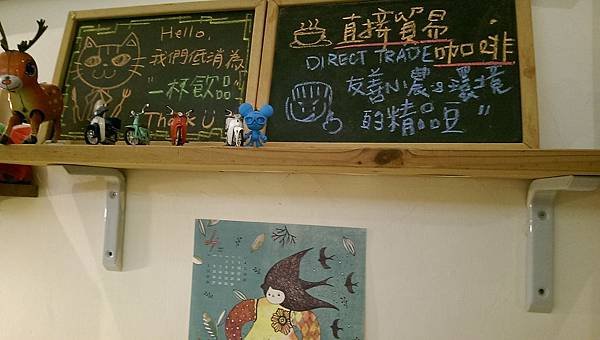 Hello,
我們低消為
"一杯飲品"
Thank U
直接貿易
DIRECT TRADE 咖啡
友善小農&環境
的精品豆"